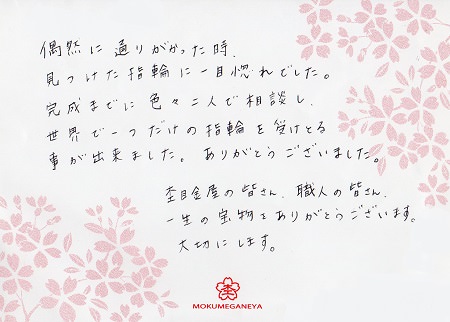 偶然に通りがかった時、
見つけた指輪に一目惚れでした。
完成までに色々二人で相談し、
世界で一つだけの指輪を受けとる
事が出来ました。ありがとうございました。
杢目金屋の皆さん、職人の皆さん、
一生の宝物をありがとうございます。
大切にします。
杢
MOKUMEGANEYA